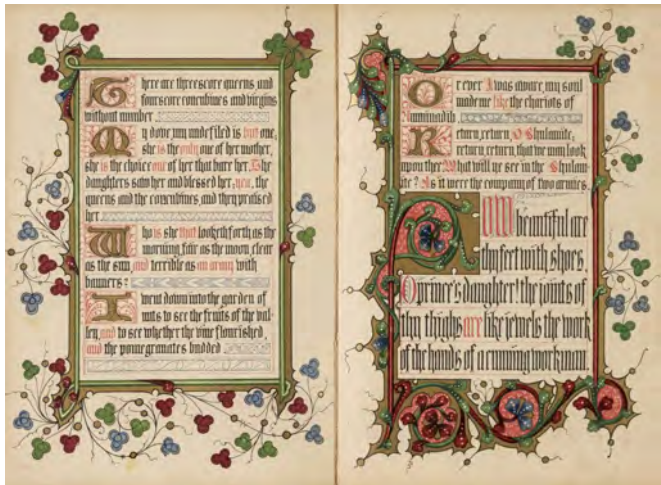 There are threescore queens, and
fourscore concubines and virgins
without number.
My dove, my undefiled is but one,
she is the only one of her mother,
she is the choice one of her that bare her. The
daughters saw her and blessed her, yea, the
queens and the concubines, and they praised
her.
Who is she that looketh forth as the
morning, fair as the moon, clear
as the sun, and terrible as an army with
banners?
I went down into the garden of
nuts to see the fruits of the val-
ley, and to see whether the vine flourished,
and the pomegranates budded.
Or ever I was aware, my soul
made me like the chariots of
Amminadib.
Return, return, O Shulamite;
return, return, that we may look
upon thee. What will ye see in the Shulam-
ite? As it were the company of two armies.
HOW
beautiful are
thy feet with shoes,
O prince's daughter! the joints of
thy thighs are like jewels the work
of the hands of a cunning workman.